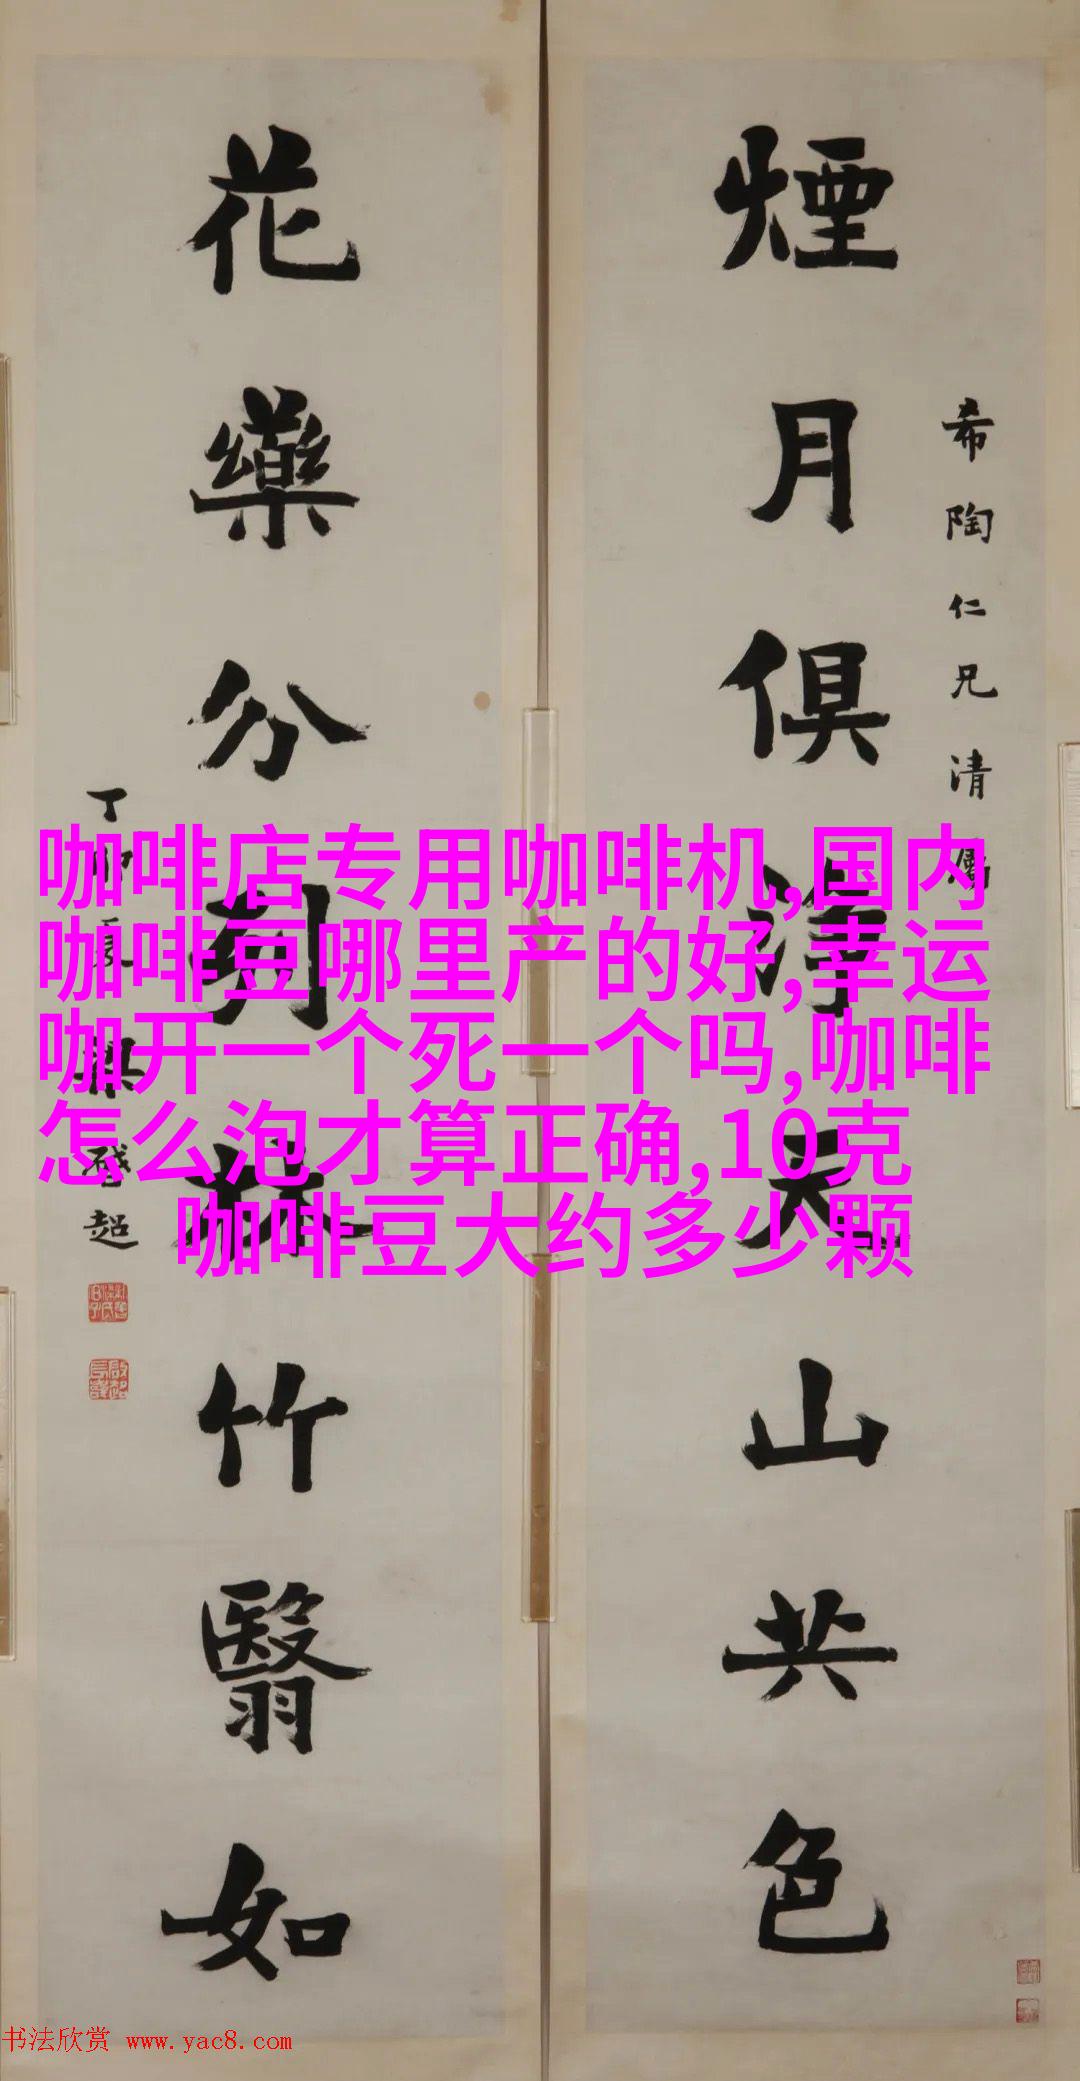 煙月俱澹天山共色
希陶仁兄清屬
花藥分列林竹翳如
丁卯夏梁啓超
咖啡店专用咖啡机,国内
咖啡豆哪里产的好,幸运
咖开一个死一个吗,咖啡
怎么泡才算正确,10克
咖啡豆大约多少颗
书法欣赏 www.yac8.com